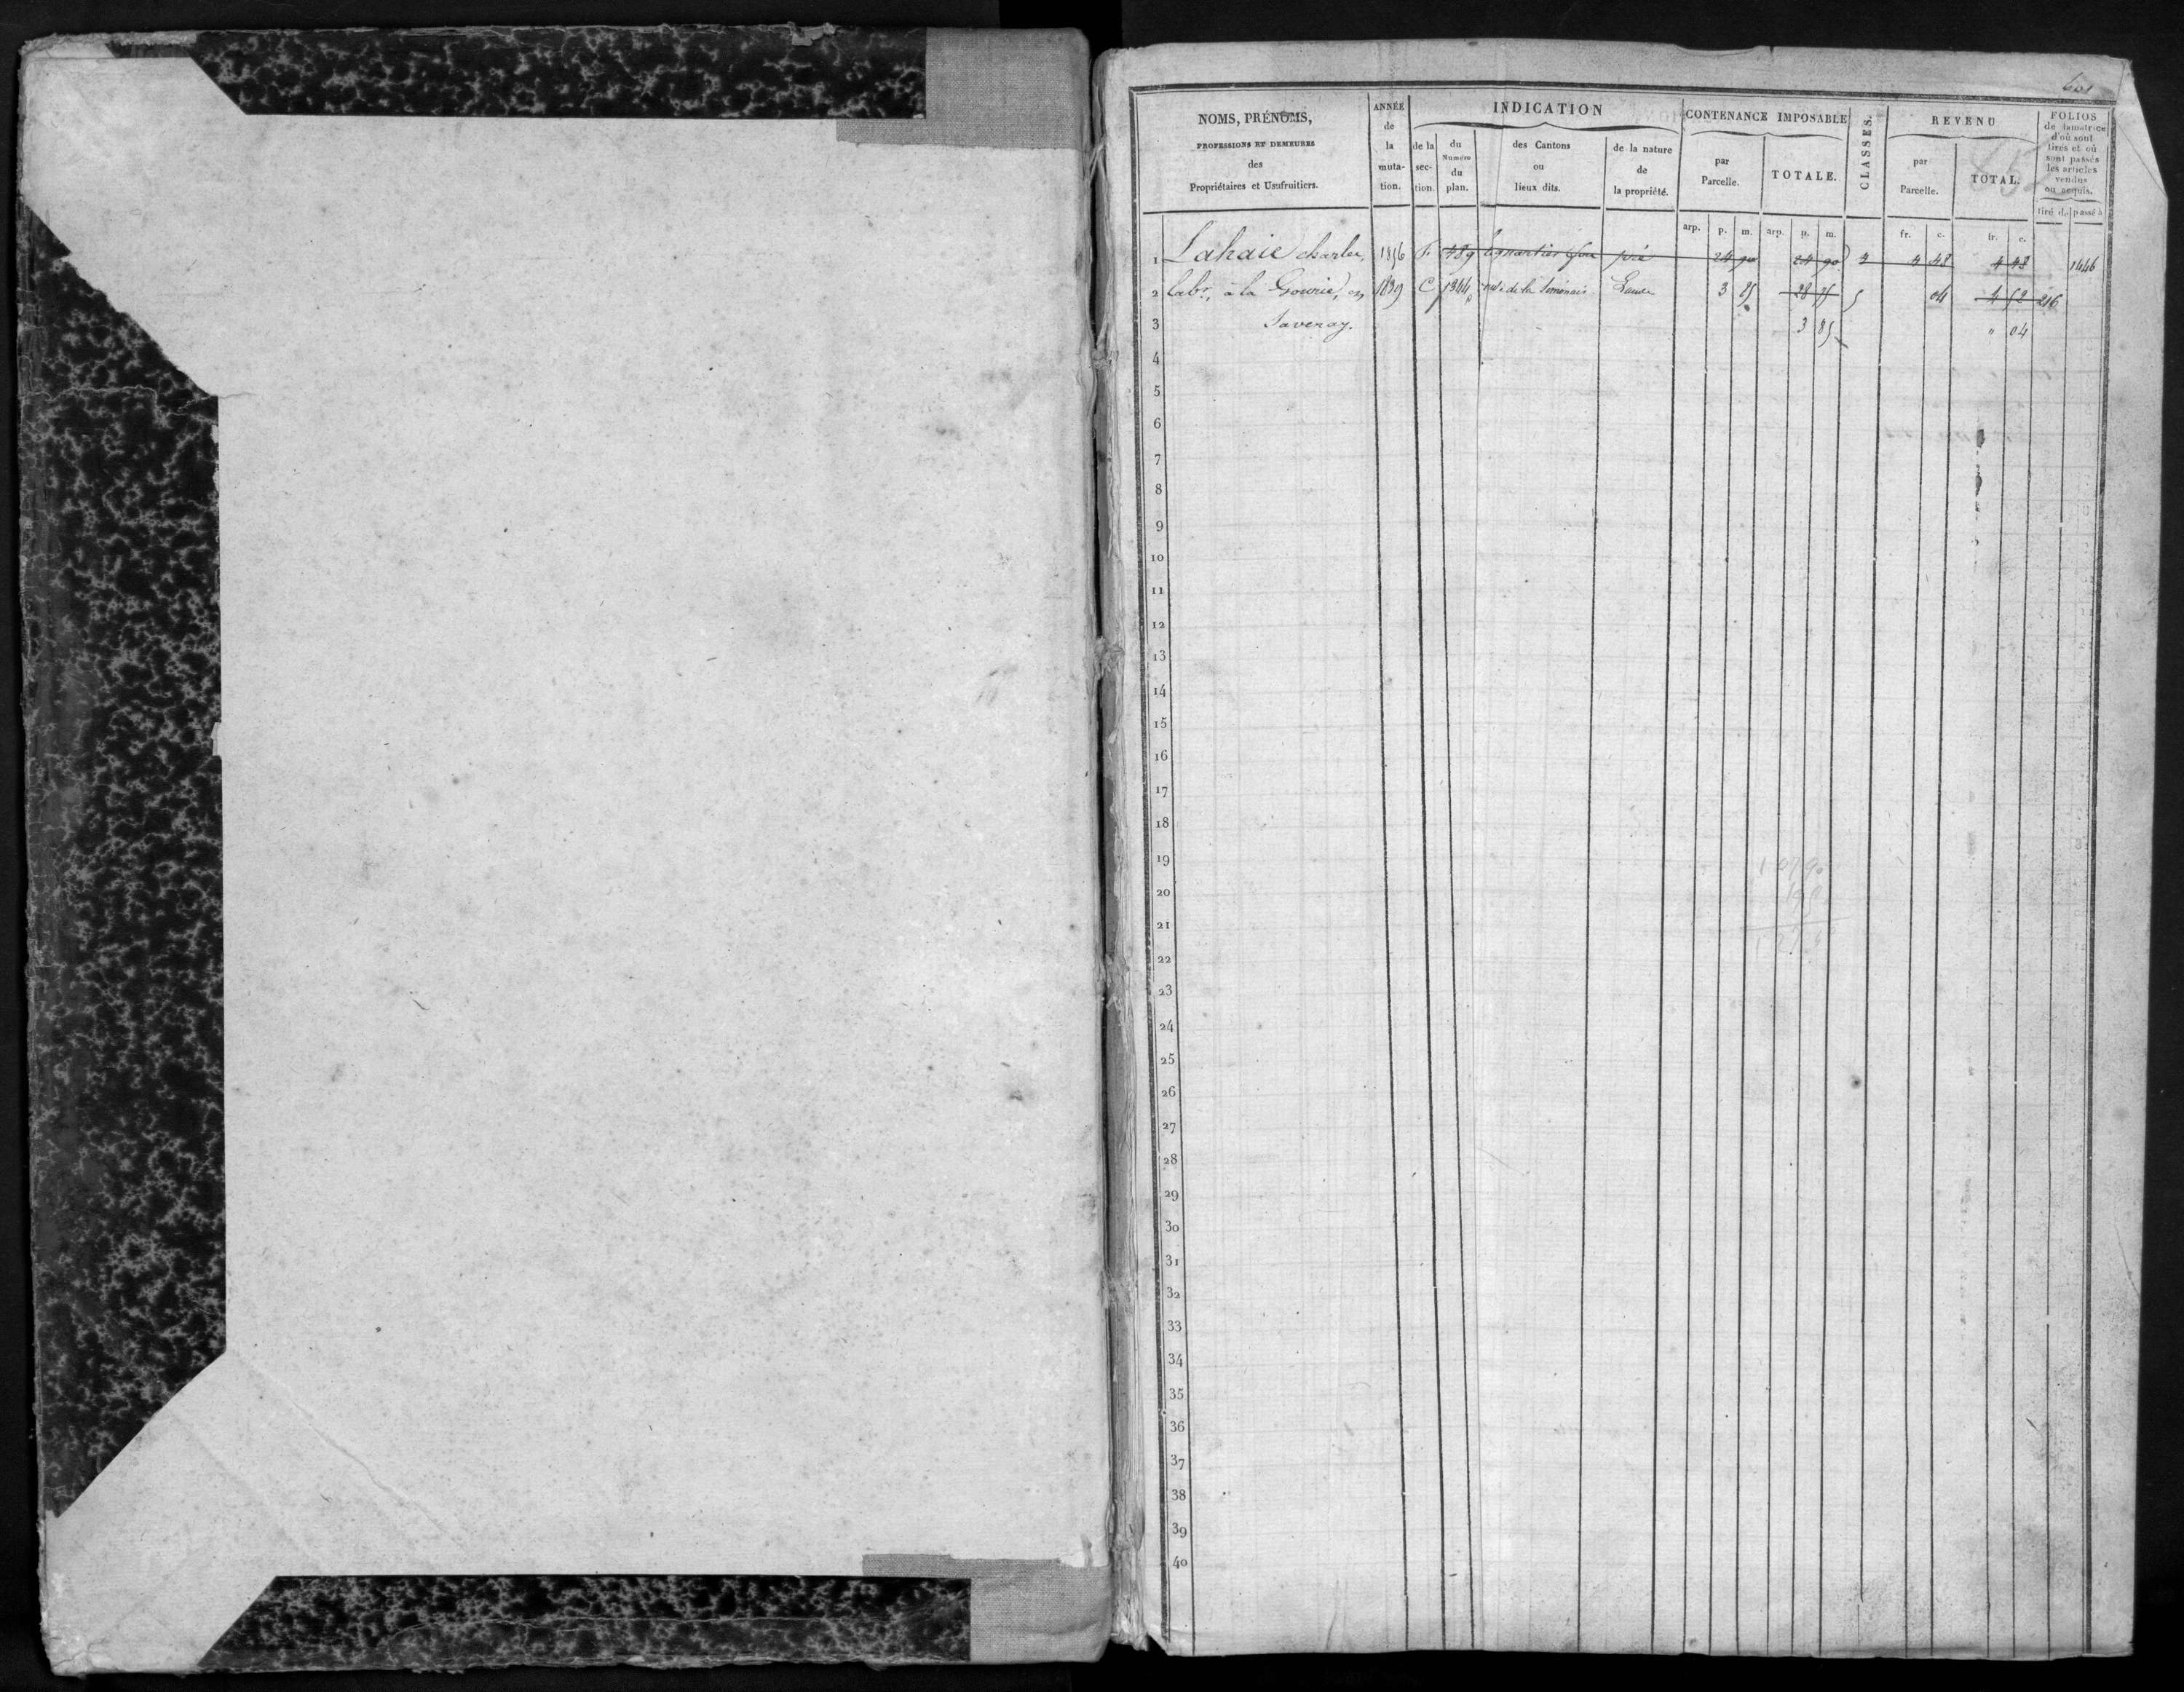 601
NOMS, PRÉNOMS,
PROFESSIONS ET DEMEURES
des
Propriétaires et Usufruitiers.
ANNÉE
de
la
muta-
tion.
INDICATION
de la
sec-
tion.
du
Numéro
du
plan.
des Cantons
ou
lieux dits.
de la nature
de
la propriété.
CONTENANCE IMPOSABLE
par
Parcelle.
TOTALE.
CLASSES.
REVENU
par
Parcelle.
TOTAL.
FOLIOS
de la matrice
d'où sont
tirés et où
sont passés
les articles
vendus
ou acquis.
tiré de passé à
arp. p. m. arp. p. m. fr. c. fr. c.
1 Lahaie charles, 1836 F. 489 pré 24 90 24 90 4 48 4 48 1446
2 labr, à la Gourie, en 1839 C 1344 de la Lande 3 85 28 75 5 04 4 52 216
3 Saveray. 3 85 " 04
4
5
6
7
8
9
10
11
12
13
14
15
16
17
18
19
20
21
22
23
24
25
26
27
28
29
30
31
32
33
34
35
36
37
38
39
40